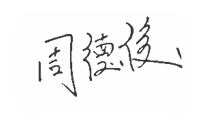 周德俊